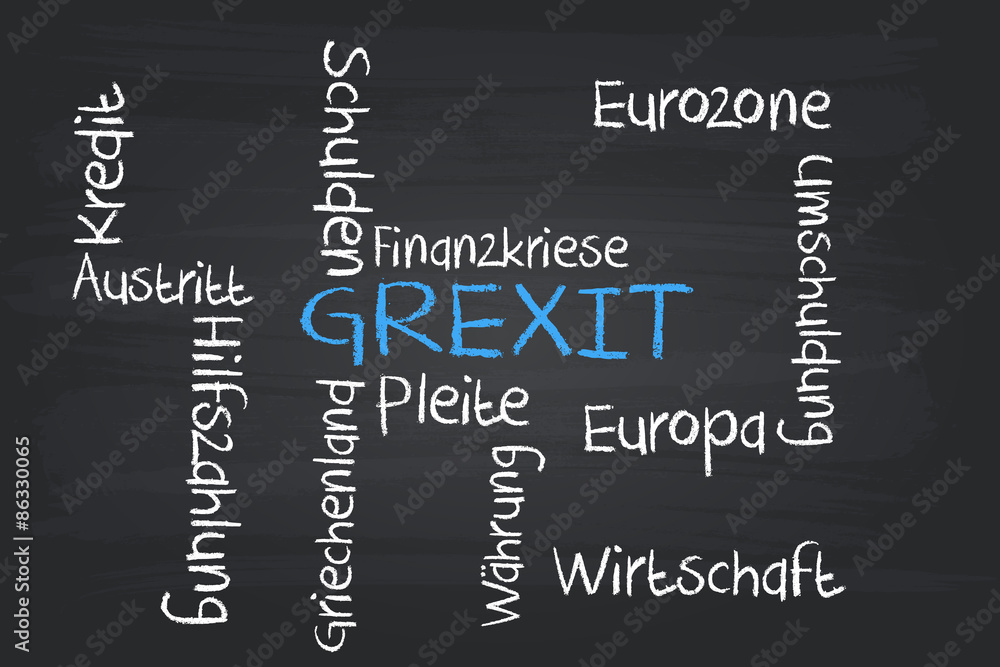 Schulden
Kredit
Eurozone
Umschuldung
Finanzkriese
Austritt
GREXIT
Hilfszahlung
Griechenland
Pleite
Europa
Währung
Wirtschaft
Adobe Stock | #86330065
Adobe Stock